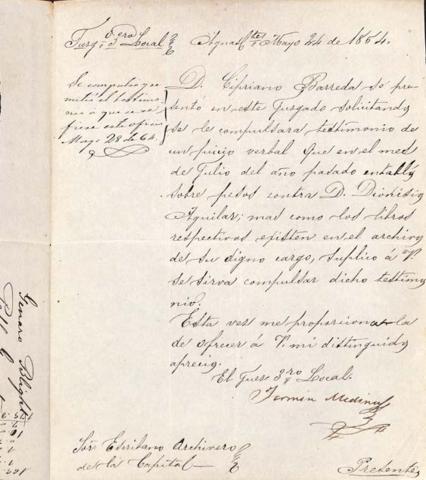 Juzgº 3ero Local
Aguastes Mayo 24 de 1864.
Se compulsó y re-
mitió el testimo-
nio a que se re-
fiere este oficio
Mayo 28 de 64.
D. Cipriano Barreda se pre-
sentó en este Juzgado solicitando
se le compulsara testimonio de
un juicio verbal que en el mes
de Julio del año pasado entabló
sobre pesos contra D. Dionisio
Aguilar; mas como los libros
respectivos existen en el archivo
de su digno cargo, suplico á V.
se sirva compulsar dicho testimo
nio.
Esta vez me proporciona la
de ofrecer á V. mi distinguido
aprecio.
El Juez 3ro Local.
Fermin Medina
Sor Escribano Archivero
de la Capital
Presente
Genaro